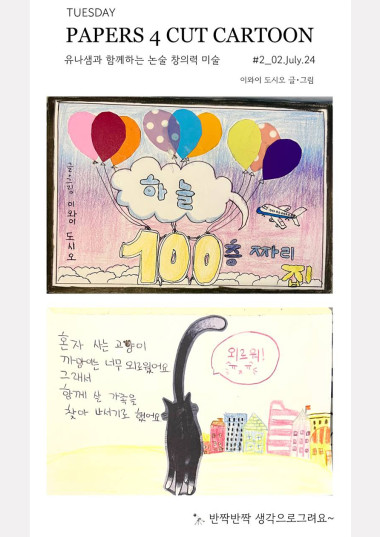 TUESDAY
PAPERS 4 CUT CARTOON
유나샘과 함께하는 논술 창의력 미술 #2_02.July.24
이와이 도시오 글·그림
하늘
글·그림 이와이 도시오
100층 짜리
집
혼자 사는 고양이
까망이는 너무 외로웠어요
그래서
함께 살 가족을
찾아 나서기로 했어요
외로워!
ㅠㅠ
반짝반짝 생각으로그려요~